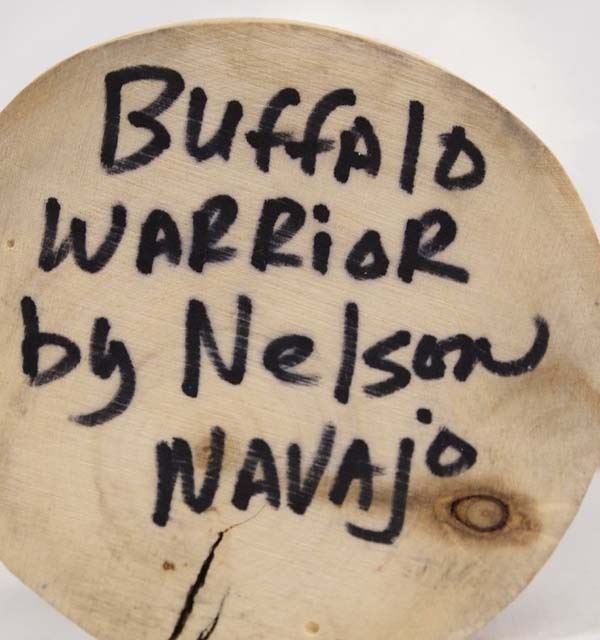 Buffalo
WARRioR
by Nelson
NAVAjo